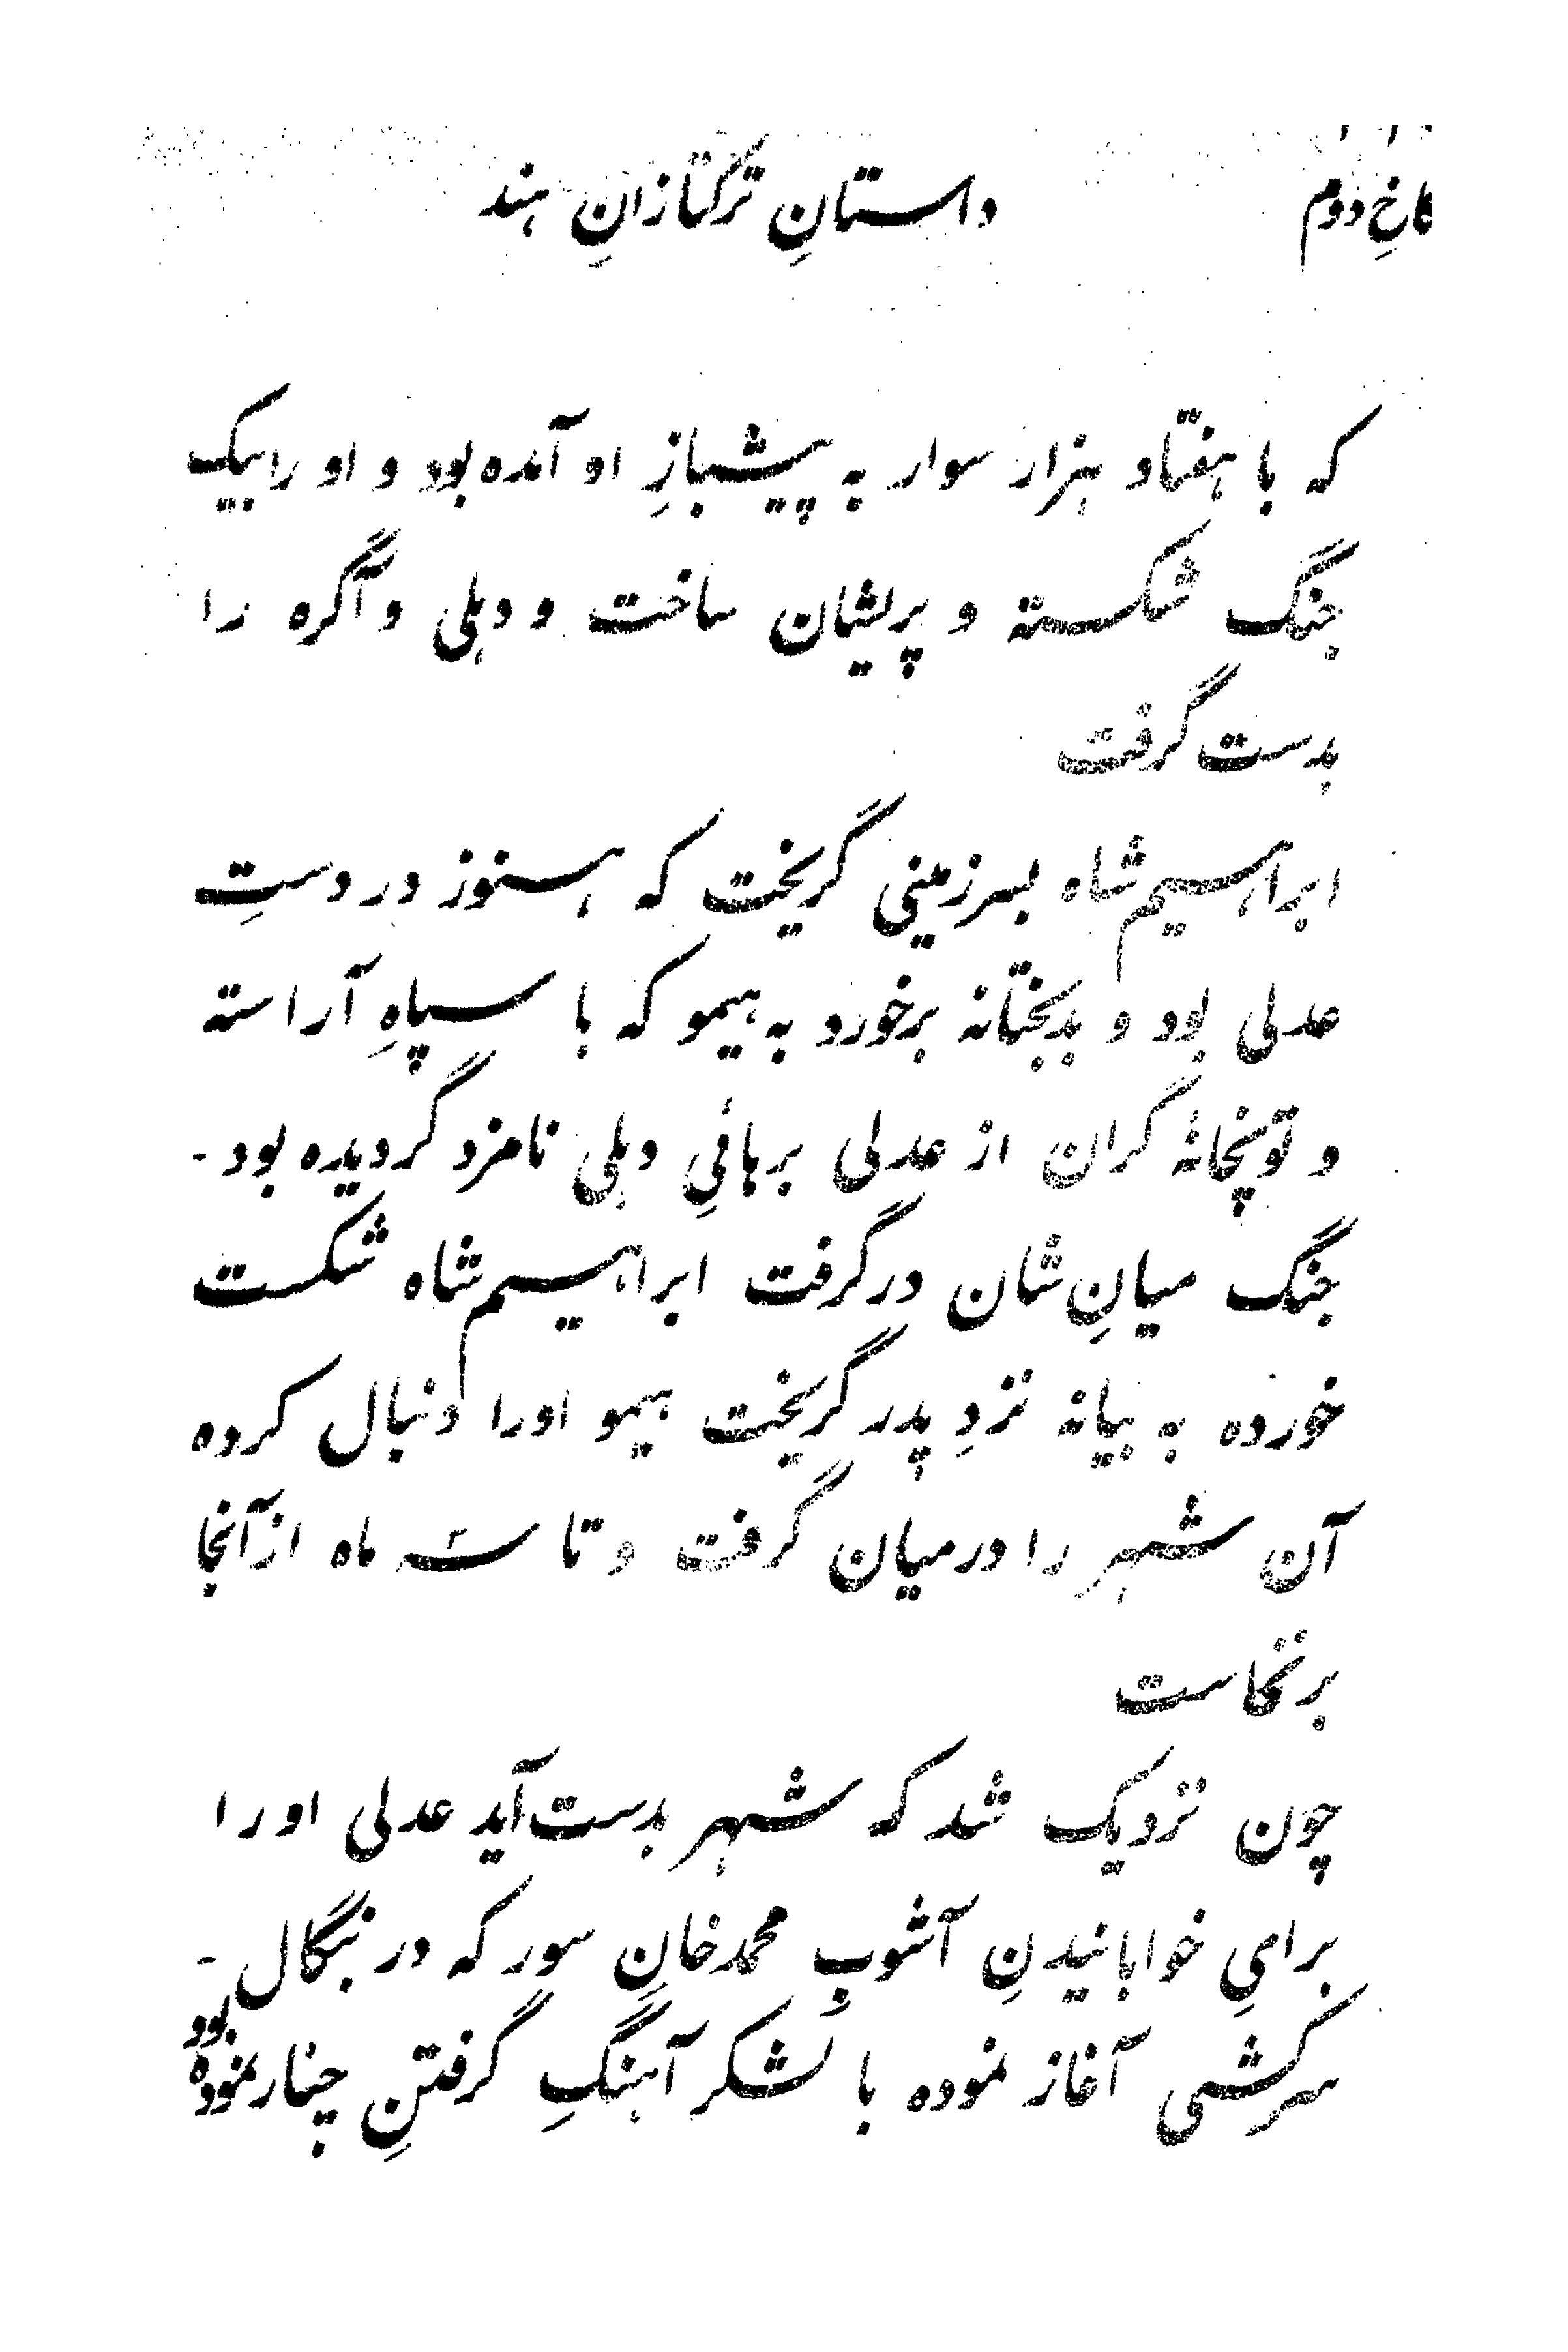 کاخِ دوم داستانِ ترکتازانِ هند
که با هفتاد هزار سوار به پیشبازِ او آمده بود و او را بیک
جنگ شکسته و پریشان ساخت و دہلی و آگره را
بدست گرفت
ابراہیم شاه بسرزمینی گریخت که ہنوز در دستِ
عدلی بود و بدبختانه برخورد به ہیمو که با سپاهِ آراسته
و توپخانۀ گران از عدلی برہائیِ دہلی نامزد گردیده بود -
جنگ میانِ شان درگرفت ابراہیم شاه شکست
خورده به بیانه نزدِ پدر گریخت ہیمو اورا دنبال کرده
آن شہر را درمیان گرفت و تا سه ماه از آنجا
برنخاست
چون نزدیک شد که شہر بدست آید عدلی اورا
برایِ خوابانیدنِ آشوبِ محمدخانِ سور که در بنگال -
سرکشی آغاز نموده با لشکر آہنگِ گرفتنِ چنار نموده بود